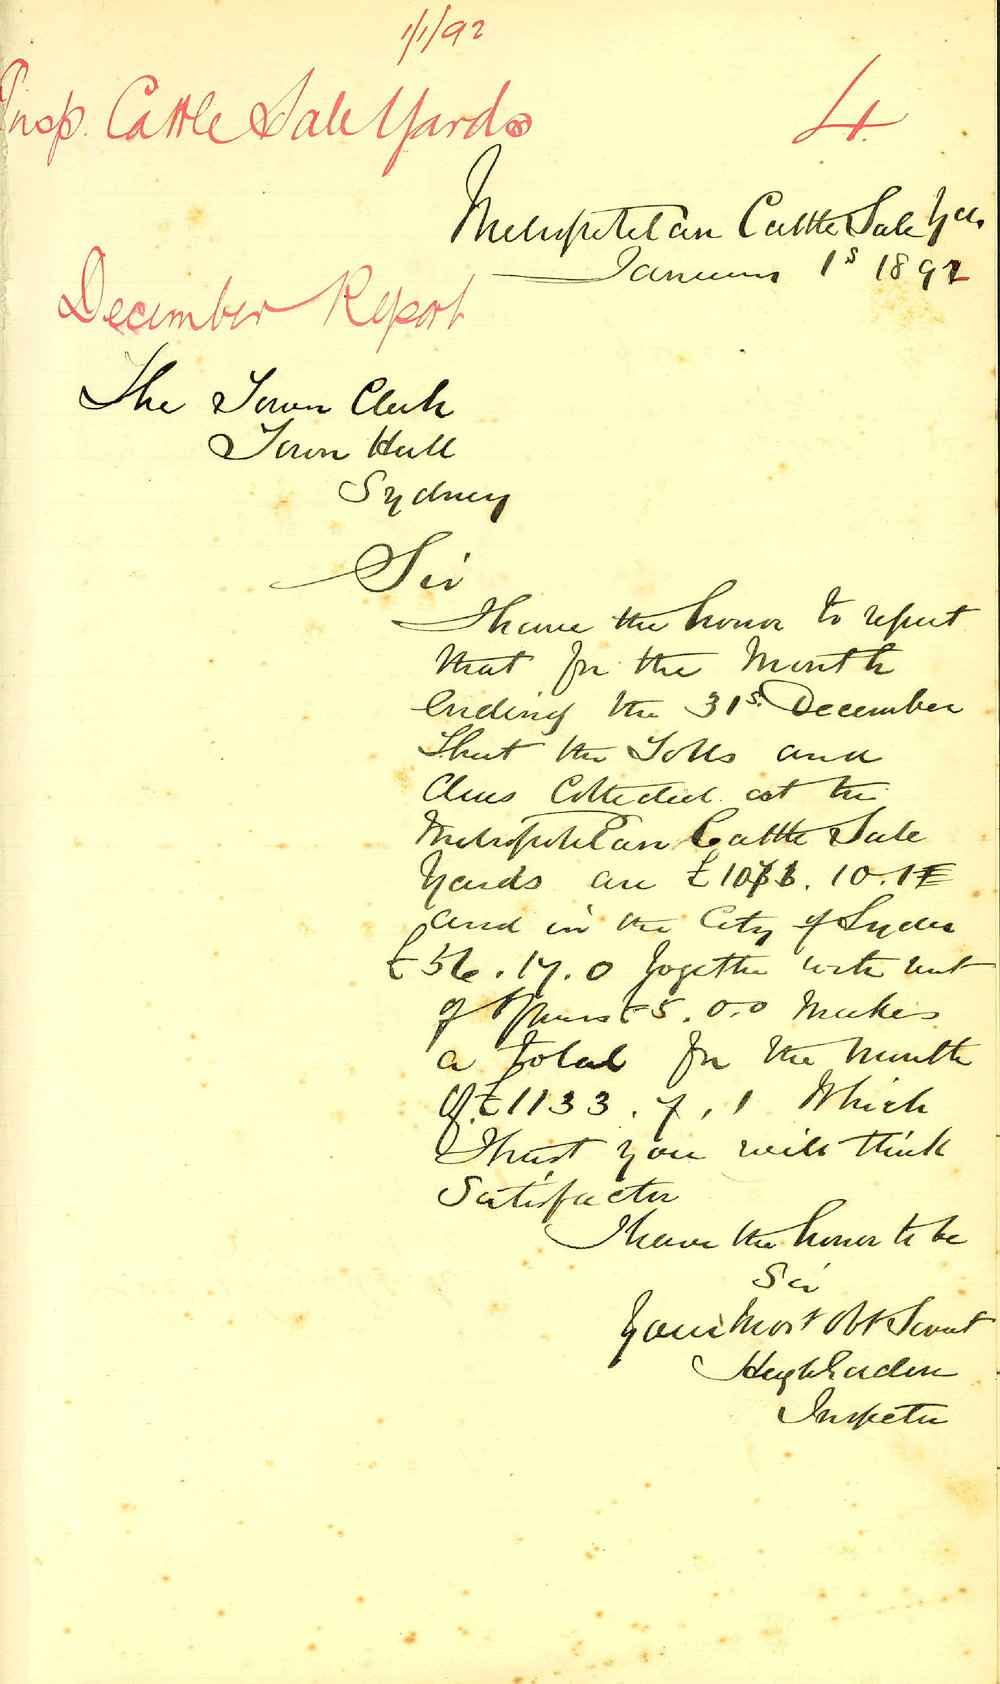 1/1/92
Insp. Cattle Sale Yards
4
Metropolitan Cattle Sale Yds
January 1s 1892
December Report
The Town Clerk
Town Hall
Sydney
Sir
I have the honor to report
that for the Month
Ending the 31s. December
That the Tolls and
dues Collected at the
Metropolitan Cattle Sale
Yards are £1071. 10. 1
and in the City of Sydn
£56. 17. 0 Together with rent
of £5. 0. 0 Makes
a Total for the Month
of £1133. 7. 1 Which
I trust you will think
Satisfactor
I have the honor to be
Sir
Your Most Obt Servant
Hugh
Inspector